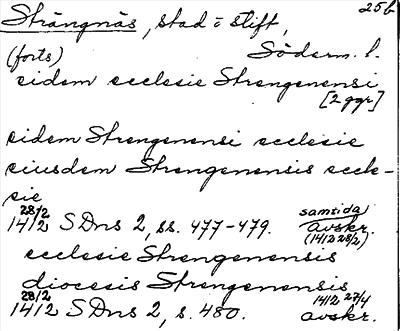 25b
Strängnäs, stad o stift,
(forts) Söderm. l.
eidem ecclesie Strengenensi
[2 ggr]
eidem Strengenensi ecclesie
eiusdem Strengenensis eccle-
sie
28/2 samtida
1412 SDns 2, ss. 477-479. avskr.
(1412 28/2)
ecclesie Strengenensis
diocesis Strengenensis
28/2 1412 27/4
1412 SDns 2, s. 480. avskr.